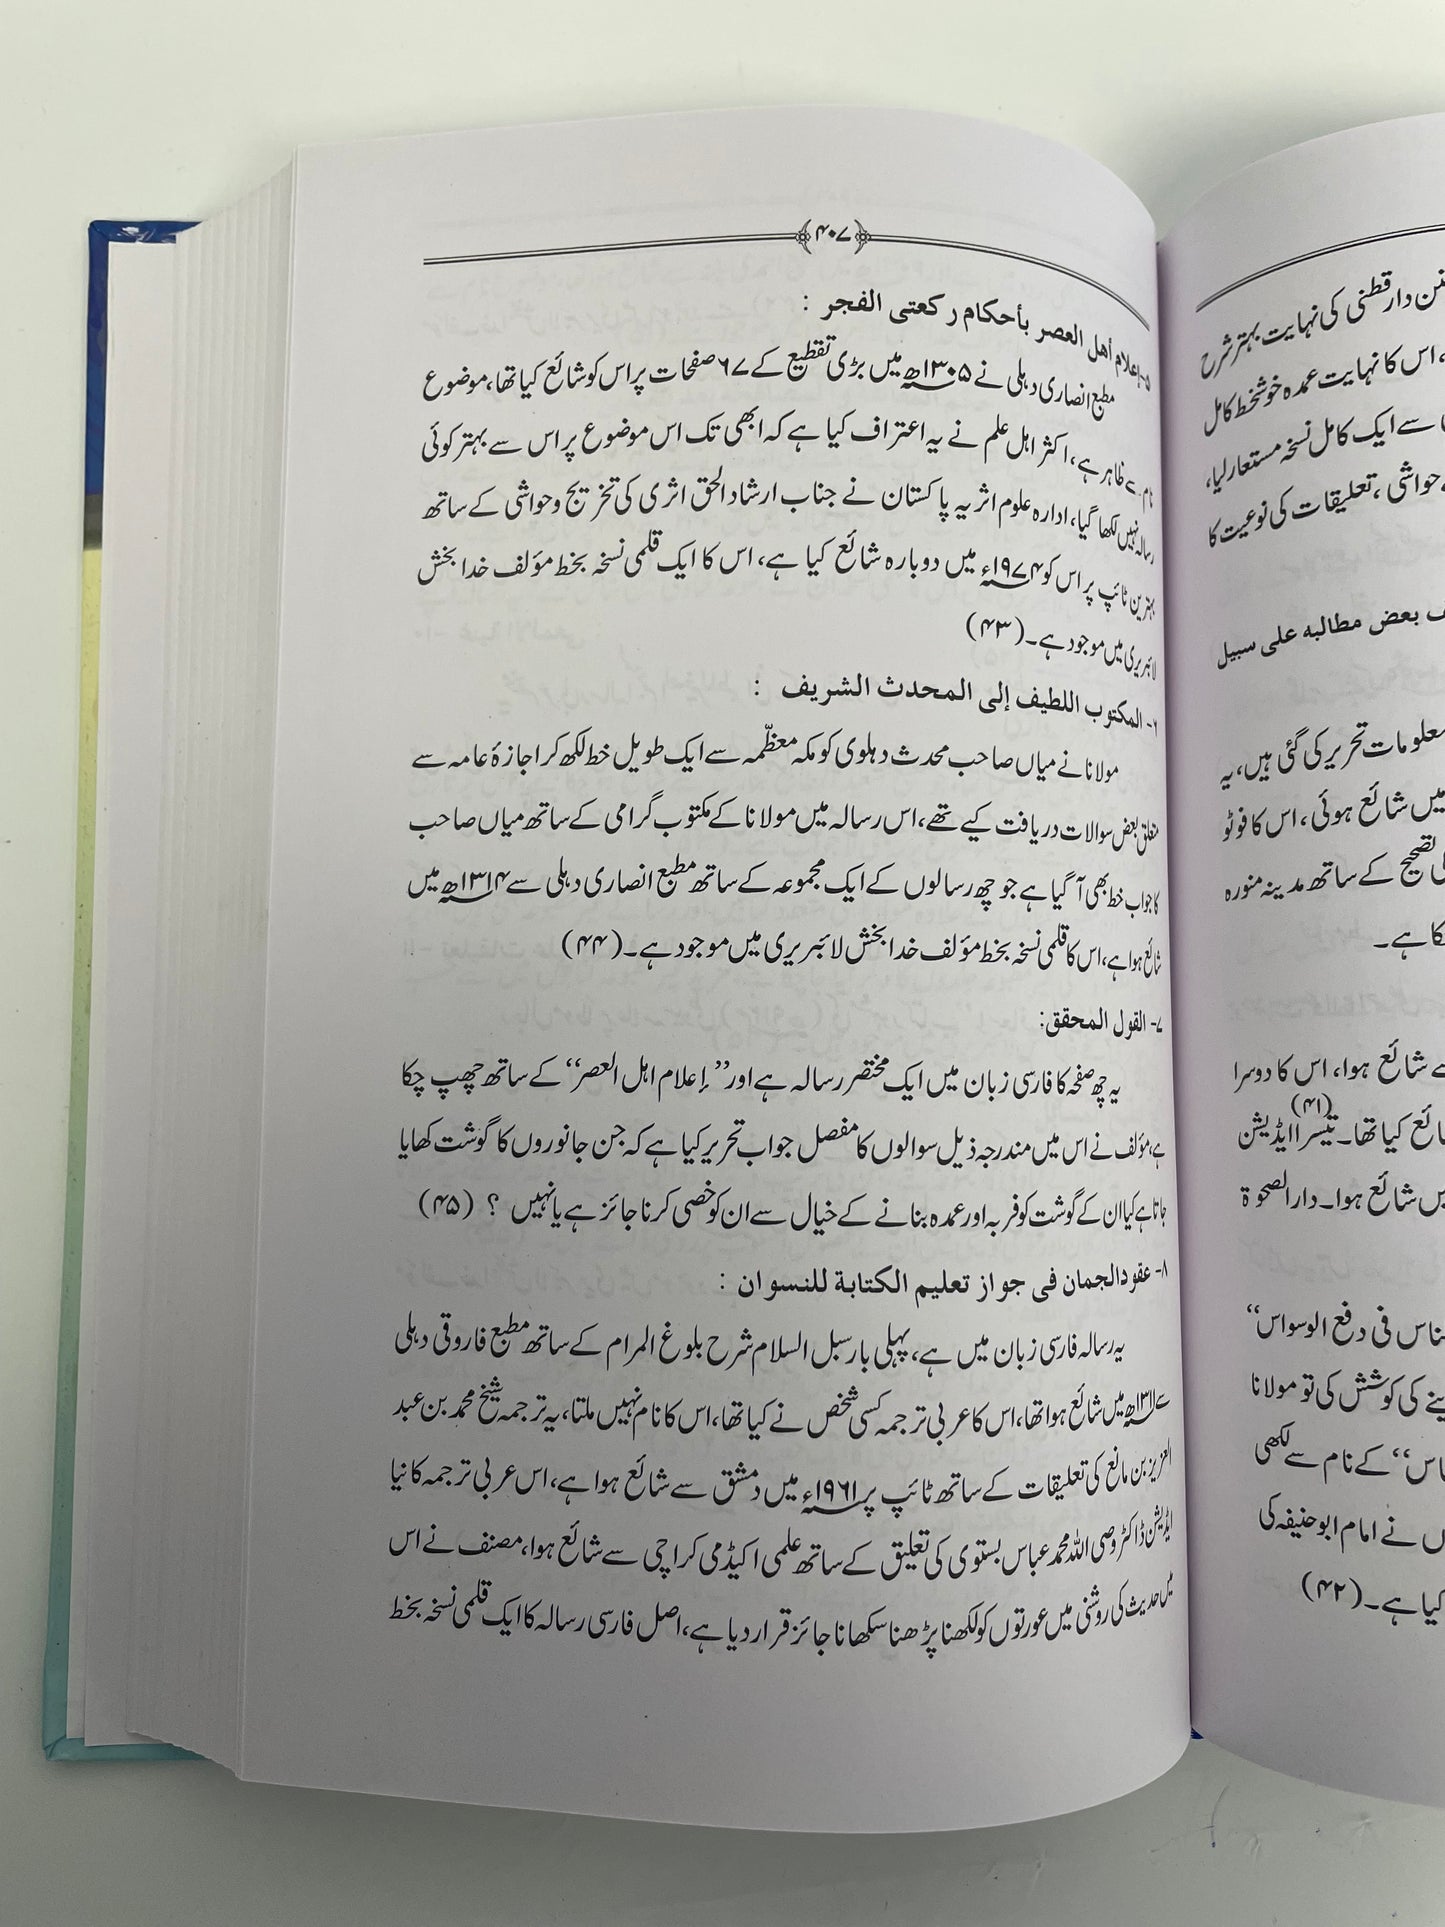 ﴿۴۰۷﴾
۵- إعلام أهل العصر بأحكام ركعتى الفجر :
مطبع انصاری دہلی نے ۱۳۰۵ھ میں بڑی تقطیع کے ۶۷ صفحات پر اس کو شائع کیا تھا، موضوع
نام سے ظاہر ہے، اکثر اہل علم نے یہ اعتراف کیا ہے کہ ابھی تک اس موضوع پر اس سے بہتر کوئی
رسالہ نہیں لکھا گیا، ادارہ علوم اثریہ پاکستان نے جناب ارشاد الحق اثری کی تخریج وحواشی کے ساتھ
بہترین ٹائپ پر اس کو ۱۹۷۴ء میں دوبارہ شائع کیا ہے، اس کا ایک قلمی نسخہ بخط مؤلف خدا بخش
لائبریری میں موجود ہے۔ (۴۳)
۶- المكتوب اللطيف إلى المحدث الشريف :
مولانا نے میاں صاحب محدث دہلوی کو مکہ معظّمہ سے ایک طویل خط لکھ کر اجازۂ عامہ سے
متعلق بعض سوالات دریافت کیے تھے، اس رسالہ میں مولانا کے مکتوب گرامی کے ساتھ میاں صاحب
کا جواب خط بھی آ گیا ہے جو چھ رسالوں کے ایک مجموعہ کے ساتھ مطبع انصاری دہلی سے ۱۳۱۴ھ میں
شائع ہوا ہے، اس کا قلمی نسخہ بخط مؤلف خدا بخش لائبریری میں موجود ہے۔ (۴۴)
۷- القول المحقق:
یہ چھ صفحہ کا فارسی زبان میں ایک مختصر رسالہ ہے اور ”إعلام اہل العصر“ کے ساتھ چھپ چکا
ہے، مؤلف نے اس میں مندرجہ ذیل سوالوں کا مفصل جواب تحریر کیا ہے کہ جن جانوروں کا گوشت کھایا
جاتا ہے کیا ان کے گوشت کو فربہ اور عمدہ بنانے کے خیال سے ان کو خصی کرنا جائز ہے یا نہیں ؟ (۴۵)
۸- عقود الجمان فى جواز تعليم الكتابة للنسوان :
یہ رسالہ فارسی زبان میں ہے، پہلی بار سبل السلام شرح بلوغ المرام کے ساتھ مطبع فاروقی دہلی
سے ۱۳۱۱ھ میں شائع ہوا تھا، اس کا عربی ترجمہ کسی شخص نے کیا تھا، اس کا نام نہیں ملتا، یہ ترجمہ شیخ محمد بن عبد
العزیز بن مانع کی تعلیقات کے ساتھ ٹائپ پر ۱۹۶۱ء میں دمشق سے شائع ہوا ہے، اس عربی ترجمہ کا نیا
ایڈیشن ڈاکٹر وصی اللہ محمد عباس بستوی کی تعلیق کے ساتھ علمی اکیڈمی کراچی سے شائع ہوا، مصنف نے اس
میں حدیث کی روشنی میں عورتوں کو لکھنا پڑھنا سکھانا جائز قرار دیا ہے، اصل فارسی رسالہ کا ایک قلمی نسخہ بخط
دار قطنی کی نہایت بہتر شرح
، اس کا نہایت عمدہ خوشخط کامل
سے ایک کامل نسخہ مستعار لیا،
حواشی، تعلیقات کی نوعیت کا
بعض مطالبه على سبيل
معلومات تحریر کی گئی ہیں، یہ
میں شائع ہوئی، اس کا فوٹو
تصحیح کے ساتھ مدینہ منورہ
ہے۔
شائع ہوا، اس کا دوسرا
کیا تھا۔ (۴۱) تیسرا ایڈیشن
شائع ہوا۔ دار الصحوۃ
فی دفع الوسواس“
کی کوشش کی تو مولانا
“ کے نام سے لکھی
نے امام ابو حنیفہ کی
کیا ہے۔ (۴۲)